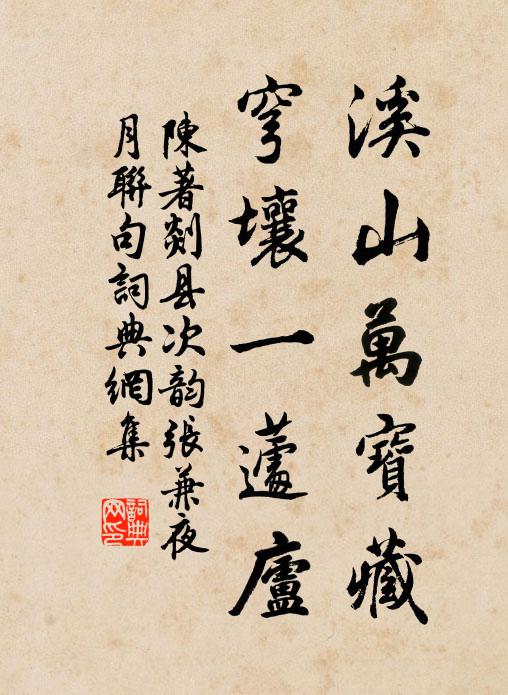 溪山萬寶藏
穹壤一蘧廬
陳著剡县次韵張兼夜
月聯句詞典網集
詞典
网印